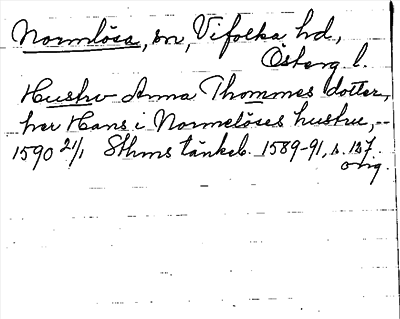 Normlösa, sn, Vifolka hd,
Österg. l.
Hustru Anna Thommes dotter,
her Hans i Normelöses hustru, --
1590 21/1 Sthms tänkeb. 1589-91, s. 137.
orig.